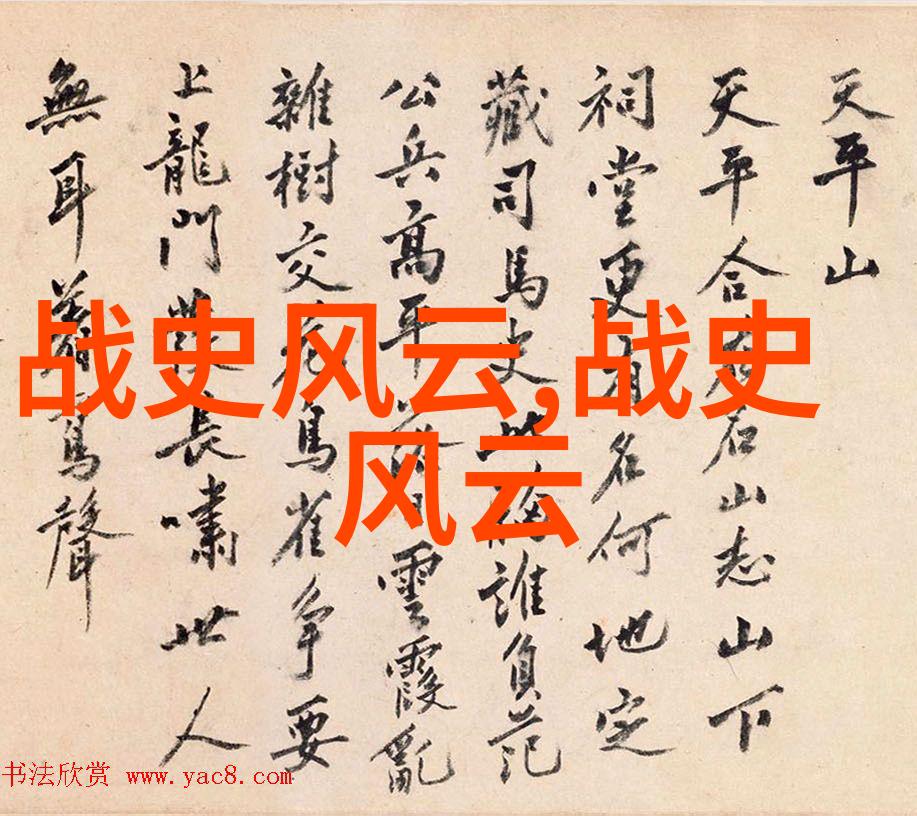 天平山
天平合石山志山下
祠堂更有名何地定
藏司馬史此誰負范
公兵高平雲霞亂
雜樹交花鳥雀争要
上龍門長嘯世人
無耳聲
战史风云,战史
风云
书法欣赏 www.yac8.com